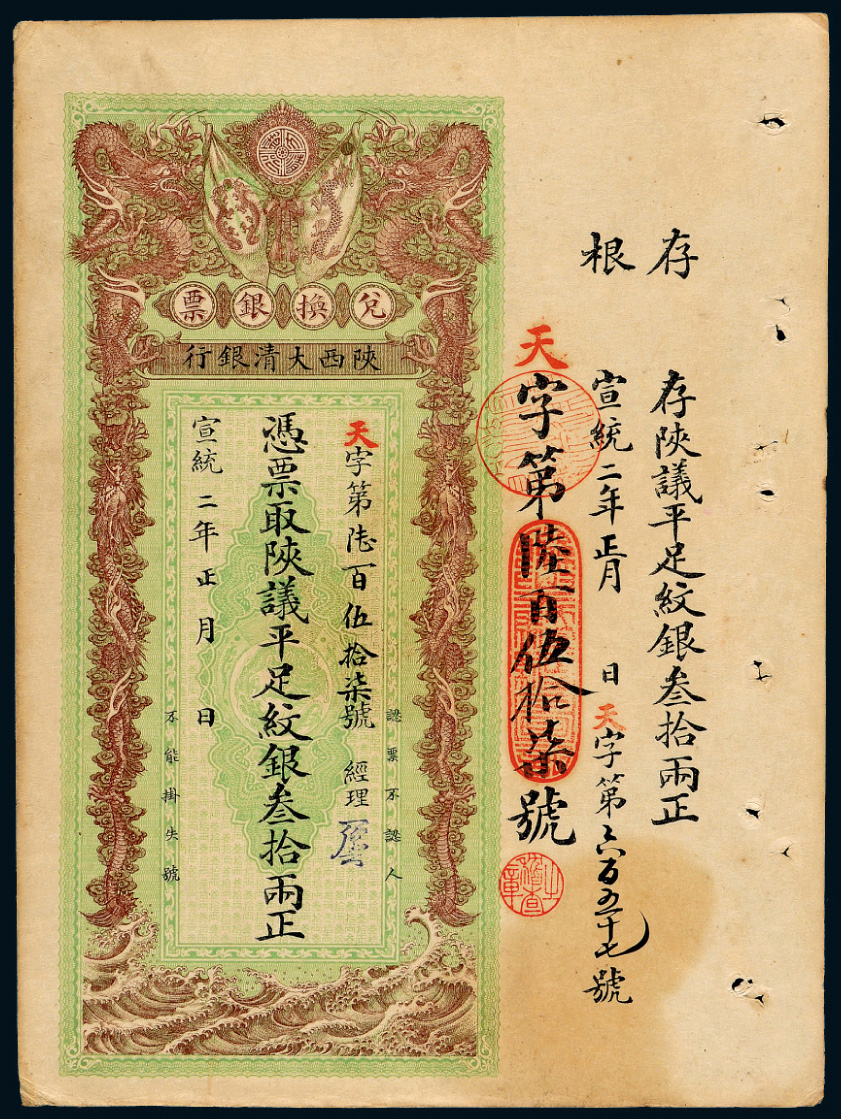 存根
存陝議平足紋銀叁拾兩正
宣統二年正月 日 天字第六百五十七號
天字第陸百伍拾柒號
稽查之章
兌換銀票
陝西大清銀行
認票不認人
天字第陸百伍拾柒號 經理
憑票取陝議平足紋銀叁拾兩正
宣統二年正月 日
不能掛失號